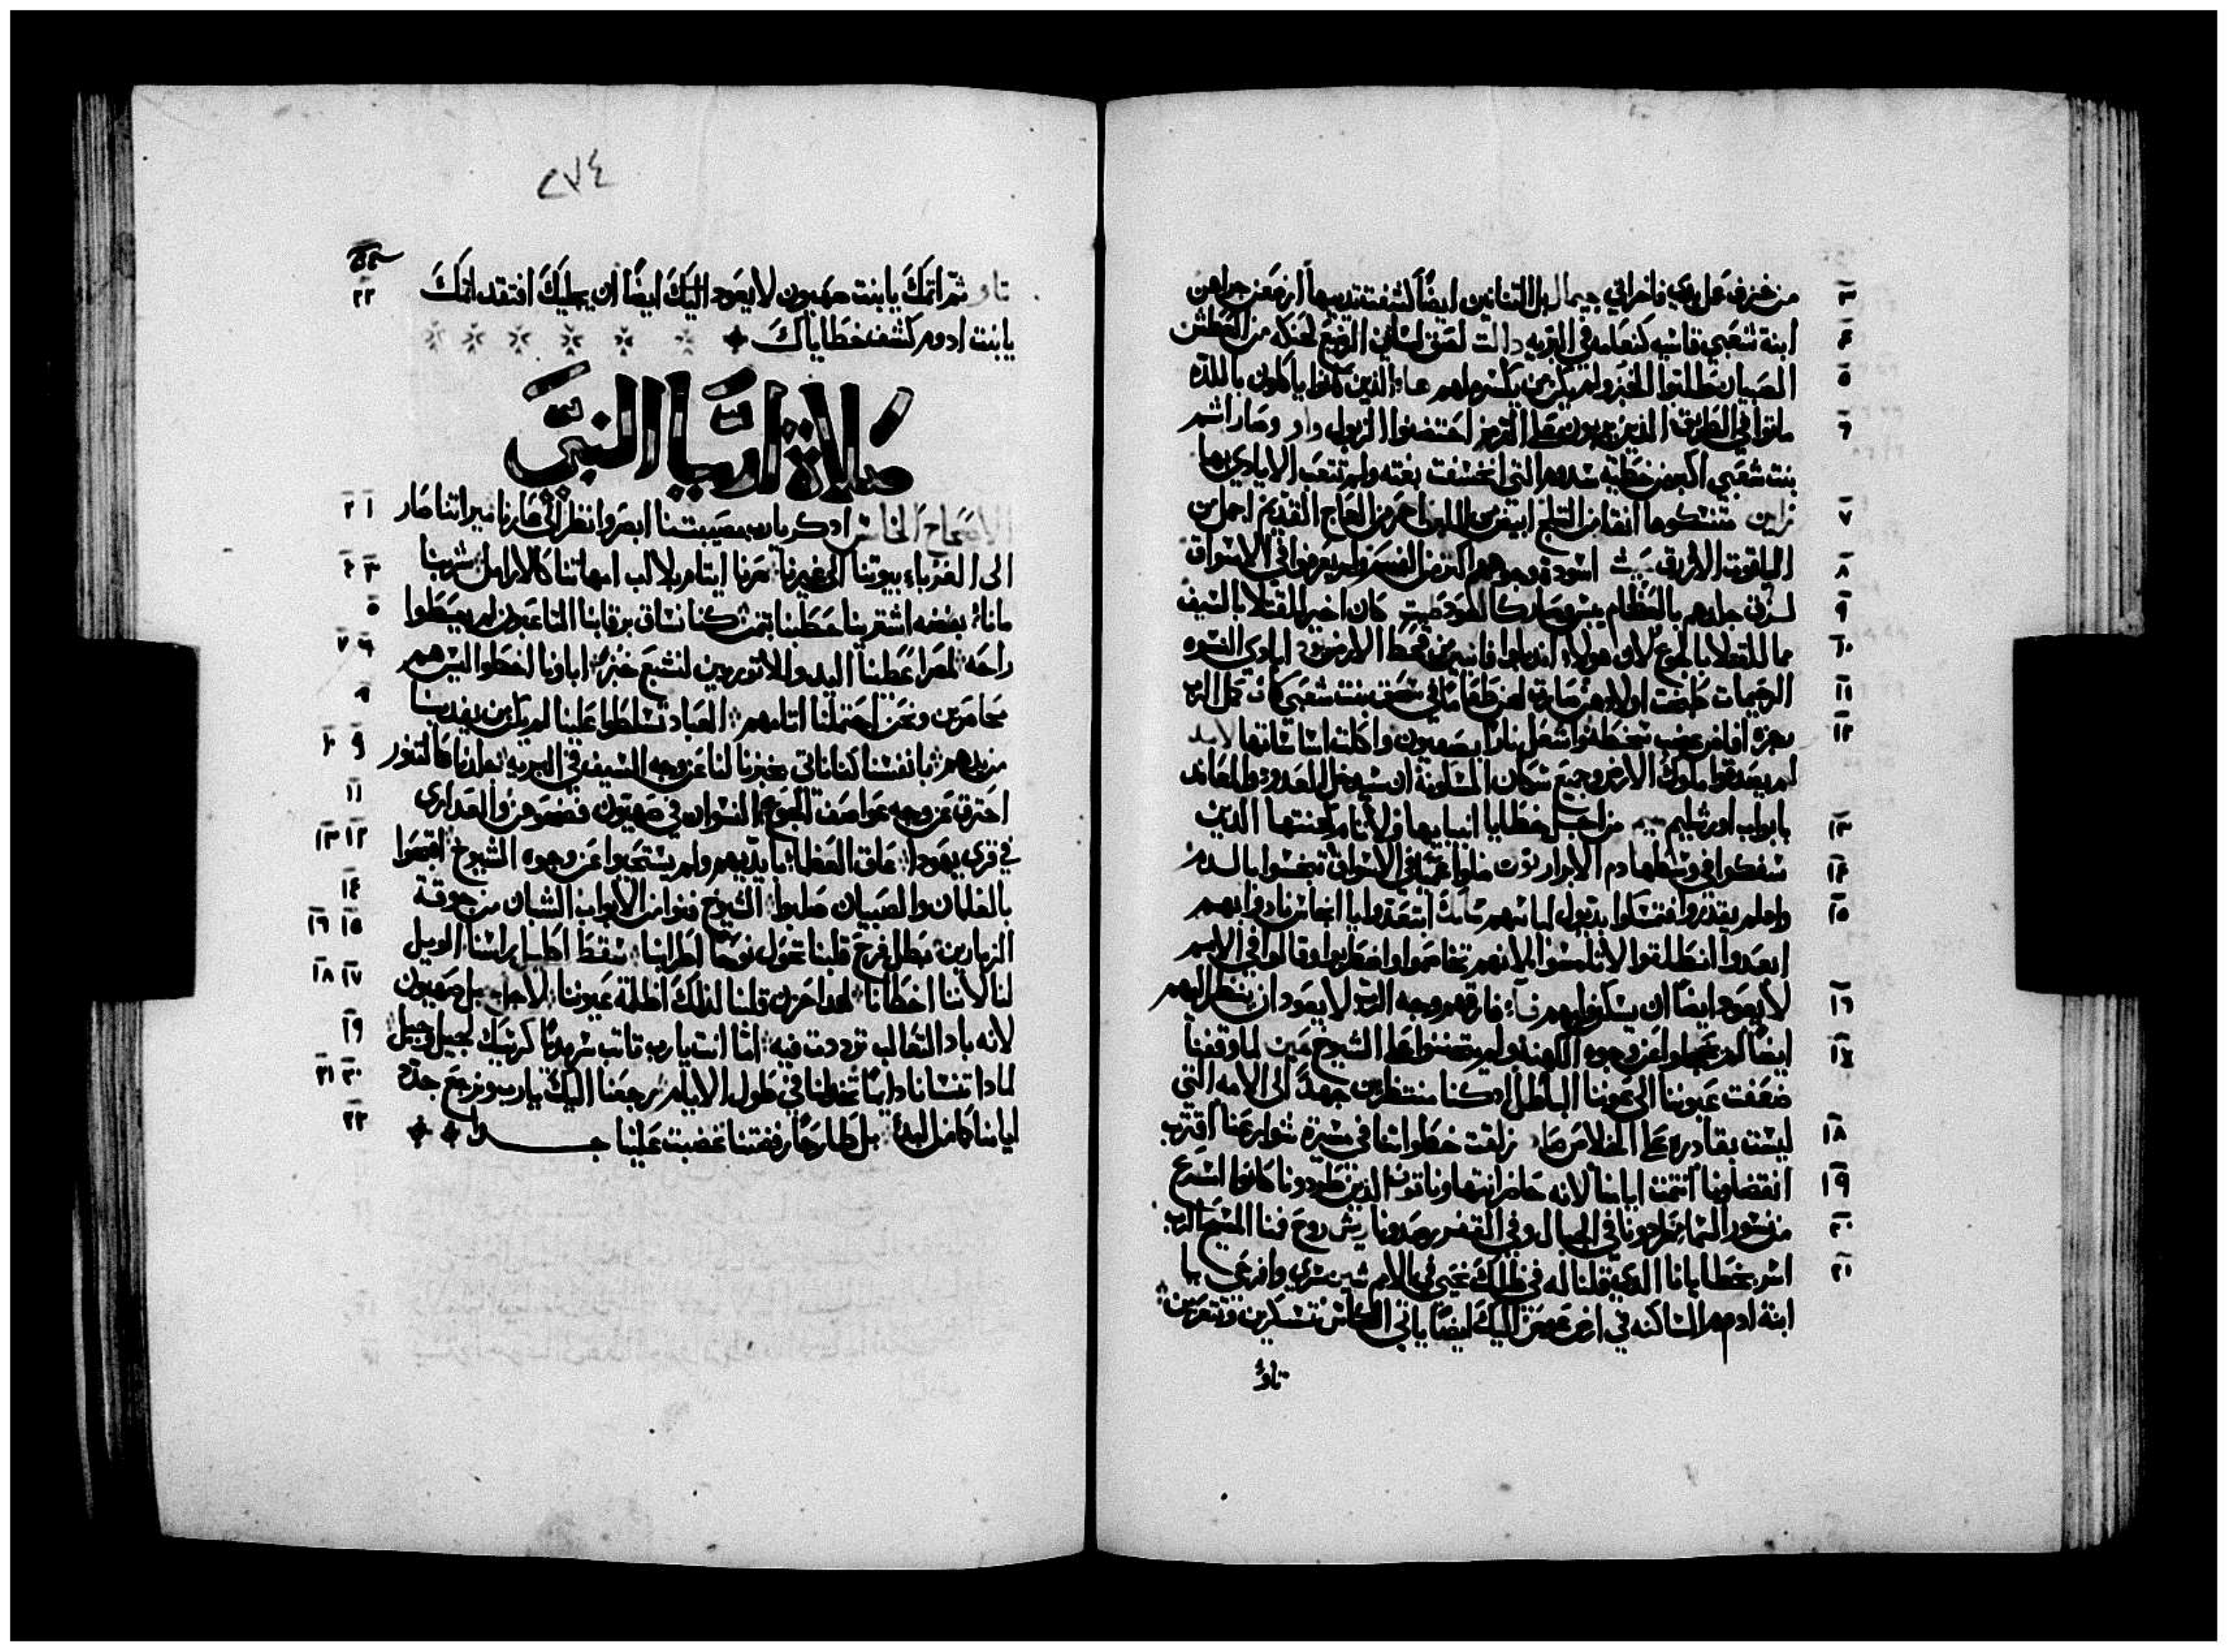 من خزف عمل يدي فاخراني جيمال بل التنانين ايضا كشفت تديها ارضعن جراهن
ابنة شعبي قاسيه كنعامه في البريه دالت لصق لسان الرضيع لحنكه من العطش
الصبيان طلبوا الخبز ولم يكن من يكسره لهم هاء الذين كانوا ياكلون باللذه
ماتوا في الطرق الذين ربيون على القرمز احتضنوا الزبول واو وصار اثم
بنت شعبي اكبر من خطيه سدوم التي انخسفت بغته ولم تتعب الايادي بها
زاين متنسكوها انقا من الثلج ابيض من اللبن احمر من العاج القديم اجمل من
الياقوت الازرق حيث اسودة وجوههم اكثر من الفحم ولم يعرفوا في الاسواق
لزق جلدهم بالعظام يبس وصار كالعود طيت كان اخير للقتلا بالسيف
مما للقتلا بالجوع لان هولاء اندبلوا فانيين من قحط الارض يود ايادي النسوه
الرحيمات طبخت اولادهن صاروا لهن طعاما في سحق بنت شعبي كاف كمل الرب
رجزه افاض غضب سخطه واشعل نارا بصهيون واكلت اساساتها لامد
لم يصدقوا ملوك الارض وجميع سكان المسكونة ان سيدخل العدو والمعاند
بابواب اورشليم ميم من اجل خطايا انبيايها ولاثام كهنتها الذين
سفكوا في وسطها دم الابرار نون ضلوا عميا في الاسواق تنجسوا بالدم
واذ لم يقدروا مسكوا بديول لباسهم سامك ابتعدوا يا انجاس نادوا بهم
ابعدوا انطلقوا لا تلمسوا لانهم تخاصموا واضطربوا وقالوا في الامم
لا يعود ايضا ان يسكن فيهم فاء فارقهم وجه الرب لا يعود ان ينظر اليهم
ايضا لم يخجلوا عن وجوه الكهنه ولم يتحننوا على الشيوخ عين لما وقفنا
ضعفت عيوننا الى عوننا الباطل اذ كنا منتظرين جهدا الى الامه التي
ليست بقادره على الخلاص صاد زلقت خطواتنا في مسيرة شوارعنا اقترب
انقضاونا اتتمت ايامنا لانه حاضر انتهاونا قوف الذين طردونا كانوا اسرع
من نسور السما طردونا في الجبال وفي القفر رصدونا ريش روح فمنا المسيح الرب
اسر بخطايانا الذي قلنا له في ظلك نحيى في الامم شين سري وافرحي يا
ابنة ادوم الساكنه في ارض عوص اليك ايضا ياتي الكاس تسكرين وتتعرين
تاو
٢٧٤
تاو تم اثمك يا بنت صهيون لا يعود اليك ايضا ان يجليك افتقد اثمك
يا بنت ادوم كشف خطاياك
صلاة ارميا النبي
الاصحاح الخامس اذكر يا رب مصيبتنا ابصر وانظر الى عارنا ميراثنا صار
الى الغرباء بيوتنا الى غيرنا صرنا ايتام بلا اب امهاتنا كالارامل شربنا
مانا بفضه اشترينا حطبنا بثمن كنا نساق برقابنا التاعبون لم يعطوا
راحه لمصر اعطينا اليد وللاتوريين لنشبع خبزا اباونا اخطوا ليس هم
بحاضرين ونحن احتملنا اثامهم العباد تسلطوا علينا لم يكن من يفدينا
من يدهم بانفسنا كنا ناتي بخبزنا لنا عن وجه السيف في البريه جلدنا كالتنور
احترق عن وجه عواصف الجوع النسوان في صهيون فضحوهن والعداري
في قرى يهودا علق العظما بايديهم ولم يستحيوا عن وجوه الشيوخ افتضوا
بالغلمان والصبيان صلبوا الشيوخ فنوا من الابواب الشبان من جوقة
الزمارين بطل فرح قلبنا تحول نوحا اطرابنا سقط اكليل راسنا الويل
لنا لاننا اخطانا لهدا حزن قلبنا لذلك اظلمة عيوننا لاجل جبل صهيون
لانه باد الثعالب ترددت فيه انت يارب تابت سرمدا كرسيك لجيل وجيل
لمادا تنسانا دايما تخطانا في طول الايام ترجعنا اليك يارب ونرجع جدد
ايامنا كما من البدء بل طارحا رفضتنا غضبت علينا جدا